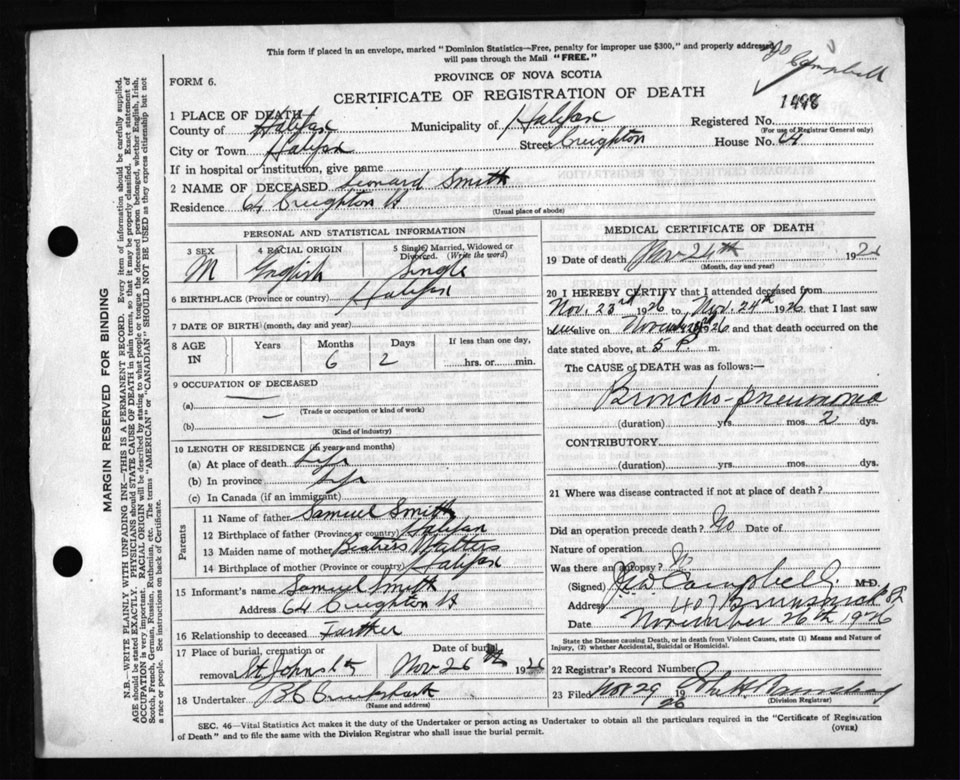 This form if placed in an envelope, marked "Dominion Statistics—Free, penalty for improper use $300," and properly addressed,
will pass through the Mail "FREE."
Campbell
FORM 6.
PROVINCE OF NOVA SCOTIA
CERTIFICATE OF REGISTRATION OF DEATH
1 PLACE OF DEATH
County of Halifax Municipality of Halifax Registered No.
(For use of Registrar General only)
City or Town Halifax Street Creighton House No. 64
If in hospital or institution, give name
2 NAME OF DECEASED Leonard Smith
Residence 64 Creighton St
(Usual place of abode)
PERSONAL AND STATISTICAL INFORMATION
3 SEX 4 RACIAL ORIGIN 5 Single, Married, Widowed or
Divorced. (Write the word)
M English Single
6 BIRTHPLACE (Province or country) Halifax
7 DATE OF BIRTH (month, day and year)
8 AGE IN Years Months Days If less than one day,
6 2 hrs. or min.
9 OCCUPATION OF DECEASED
(a) —
(Trade or occupation or kind of work)
(b) —
(Kind of industry)
10 LENGTH OF RESIDENCE (in years and months)
(a) At place of death Life
(b) In province Life
(c) In Canada (if an immigrant)
Parents
11 Name of father Samuel Smith
12 Birthplace of father (Province or country) Halifax
13 Maiden name of mother Beatress Walters
14 Birthplace of mother (Province or country) Halifax
15 Informant's name Samuel Smith
Address 64 Creighton St
16 Relationship to deceased Farther
17 Place of burial, cremation or Date of burial
removal St Johns Nov 26 1926
18 Undertaker
(Name and address)
MEDICAL CERTIFICATE OF DEATH
19 Date of death Nov 24th 1926
(Month, day and year)
20 I HEREBY CERTIFY that I attended deceased from
Nov. 23rd 1926 to Nov. 24th 1926 that I last saw
him alive on November 1926 and that death occurred on the
date stated above, at 5 P m.
The CAUSE of DEATH was as follows:—
Broncho-pneumonia
(duration) yrs. mos. 2 dys.
CONTRIBUTORY
(duration) yrs. mos. dys.
21 Where was disease contracted if not at place of death?
Did an operation precede death? No Date of
Nature of operation
Was there an autopsy?
(Signed) Campbell M.D.
Address 407 Brunswick St
Date November 26th 1926
State the Disease causing Death, or in death from Violent Causes, state (1) Means and Nature of
Injury, (2) whether Accidental, Suicidal or Homicidal.
22 Registrar's Record Number
23 Filed Nov 29 1926
(Division Registrar)
SEC. 46—Vital Statistics Act makes it the duty of the Undertaker or person acting as Undertaker to obtain all the particulars required in the "Certificate of Registration
of Death" and to file the same with the Division Registrar who shall issue the burial permit.
(OVER)
MARGIN RESERVED FOR BINDING
N.B.—WRITE PLAINLY WITH UNFADING INK—THIS IS A PERMANENT RECORD. Every item of information should be carefully supplied.
AGE should be stated EXACTLY. PHYSICIANS should STATE CAUSE OF DEATH in plain terms, so that it may be properly classified. Exact statement of
OCCUPATION is very important. RACIAL ORIGIN will be described by stating to what people or tongue the deceased person belonged, whether English, Irish,
Scotch, French, German, Russian, Ruthenian, etc. The terms "AMERICAN" or "CANADIAN" SHOULD NOT BE USED as they express citizenship but not
a race or people. See instructions on back of Certificate.